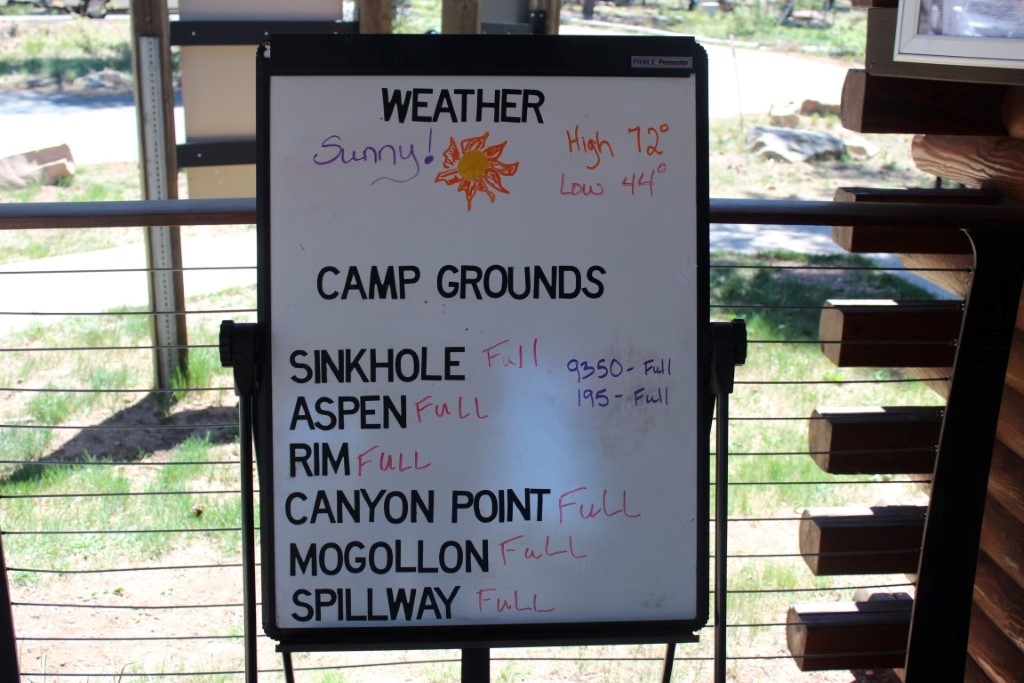 PIERCE Presenter
WEATHER
Sunny!
High 72°
Low 44°
CAMP GROUNDS
SINKHOLE Full
9350 - Full
ASPEN FULL
195 - Full
RIM FULL
CANYON POINT FULL
MOGOLLON FULL
SPILLWAY FULL